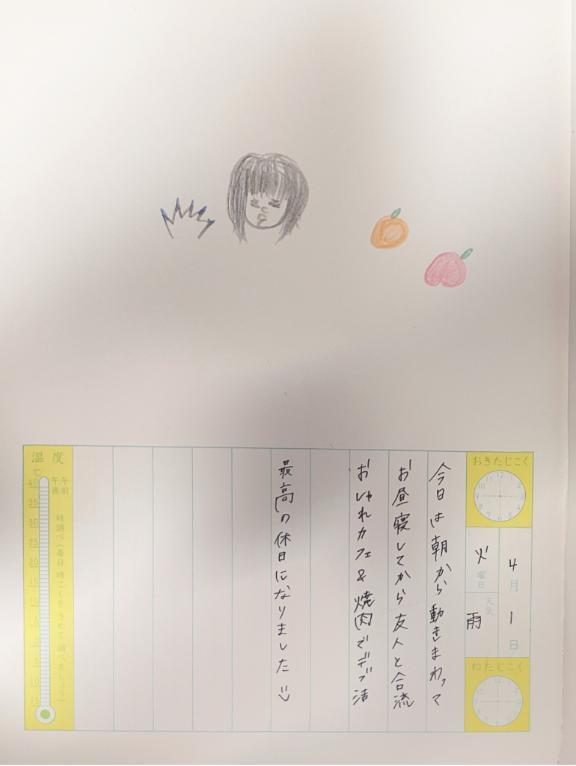 おきたじこく
4月1日
火曜日
天気
雨
ねたじこく
今日は朝から動きまわって
お昼寝してから友人と合流
おしゃれカフェ&焼肉でデブ活
最高の休日になりました
温度
℃
午前
午後